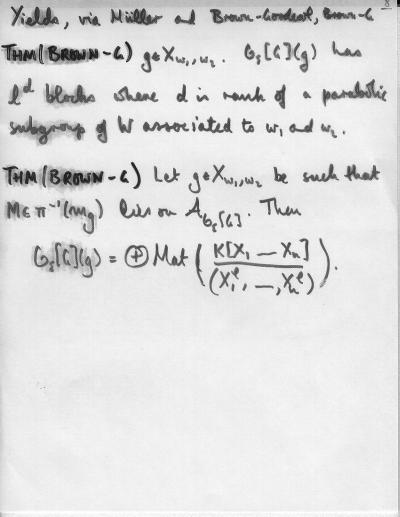 8
Yields, via Müller and Brown-Goodearl, Brown-G
THM (BROWN-G) g ∈ X_{w₁,w₂}. O_ε[G](g) has
ℓ^d blocks where d is rank of a parabolic
subgroup of W associated to w₁ and w₂.
THM (BROWN-G) Let g ∈ X_{w₁,w₂} be such that
M ∈ π⁻¹(m_g) lies on A_{O_ε[G]}. Then
O_ε[G](g) = ⊕ Mat ( K[X₁ — Xₙ] / (X₁^ℓ, —, Xₙ^ℓ) ).